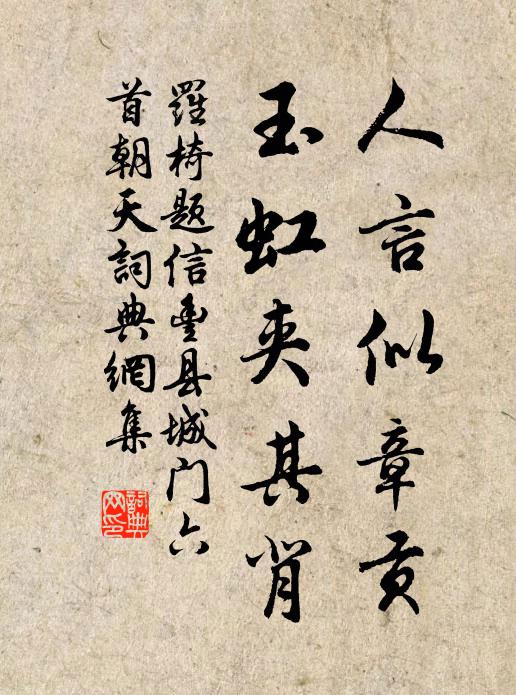 人言似章贡
玉虹夹其背
羅椅题信豊县城门六
首朝天詞典網集
詞典网印